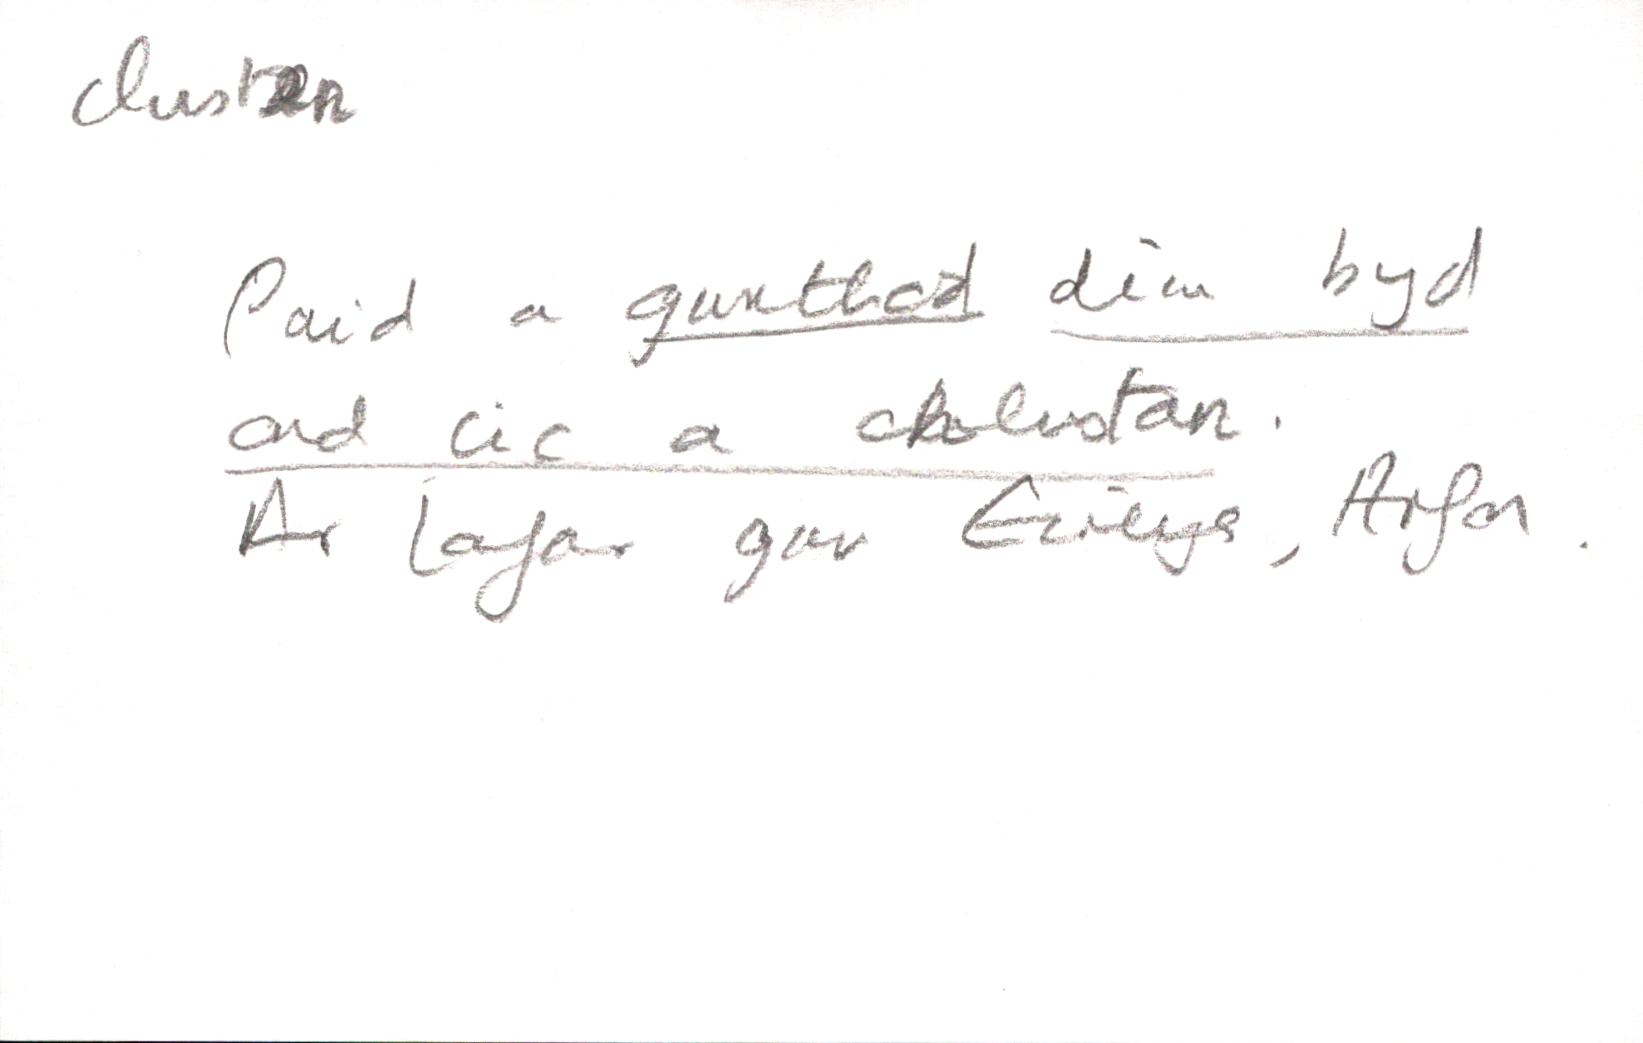 clustan
Paid a gwrthod dim byd
ond cic a chlustan.
Ar lafar gan Emlys, Arfon.